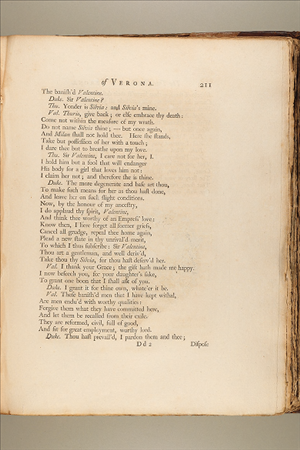 of VERONA. 211
The banish'd Valentine.
Duke. Sir Valentine?
Thu. Yonder is Silvia: and Silvia's mine.
Val. Thurio, give back; or else embrace thy death:
Come not within the measure of my wrath.
Do not name Silvia thine; — but once again,
And Milan shall not hold thee. Here she stands,
Take but possession of her with a touch;
I dare thee but to breathe upon my love.
Thu. Sir Valentine, I care not for her, I.
I hold him but a fool that will endanger
His body for a girl that loves him not:
I claim her not; and therefore she is thine.
Duke. The more degenerate and base art thou,
To make such means for her as thou hast done,
And leave her on such slight conditions.
Now, by the honour of my ancestry,
I do applaud thy spirit, Valentine,
And think thee worthy of an Empress' love:
Know then, I here forget all former griefs,
Cancel all grudge, repeal thee home again,
Plead a new state in thy unrival'd merit,
To which I thus subscribe: Sir Valentine,
Thou art a gentleman, and well deriv'd,
Take thou thy Silvia, for thou hast deserv'd her.
Val. I thank your Grace; the gift hath made me happy.
I now beseech you, for your daughter's sake,
To grant one boon that I shall ask of you.
Duke. I grant it for thine own, whate'er it be.
Val. These banish'd men that I have kept withal,
Are men endu'd with worthy qualities:
Forgive them what they have committed here,
And let them be recalled from their exile.
They are reformed, civil, full of good,
And fit for great employment, worthy lord.
Duke. Thou hast prevail'd, I pardon them and thee;
D d 2 Dispose